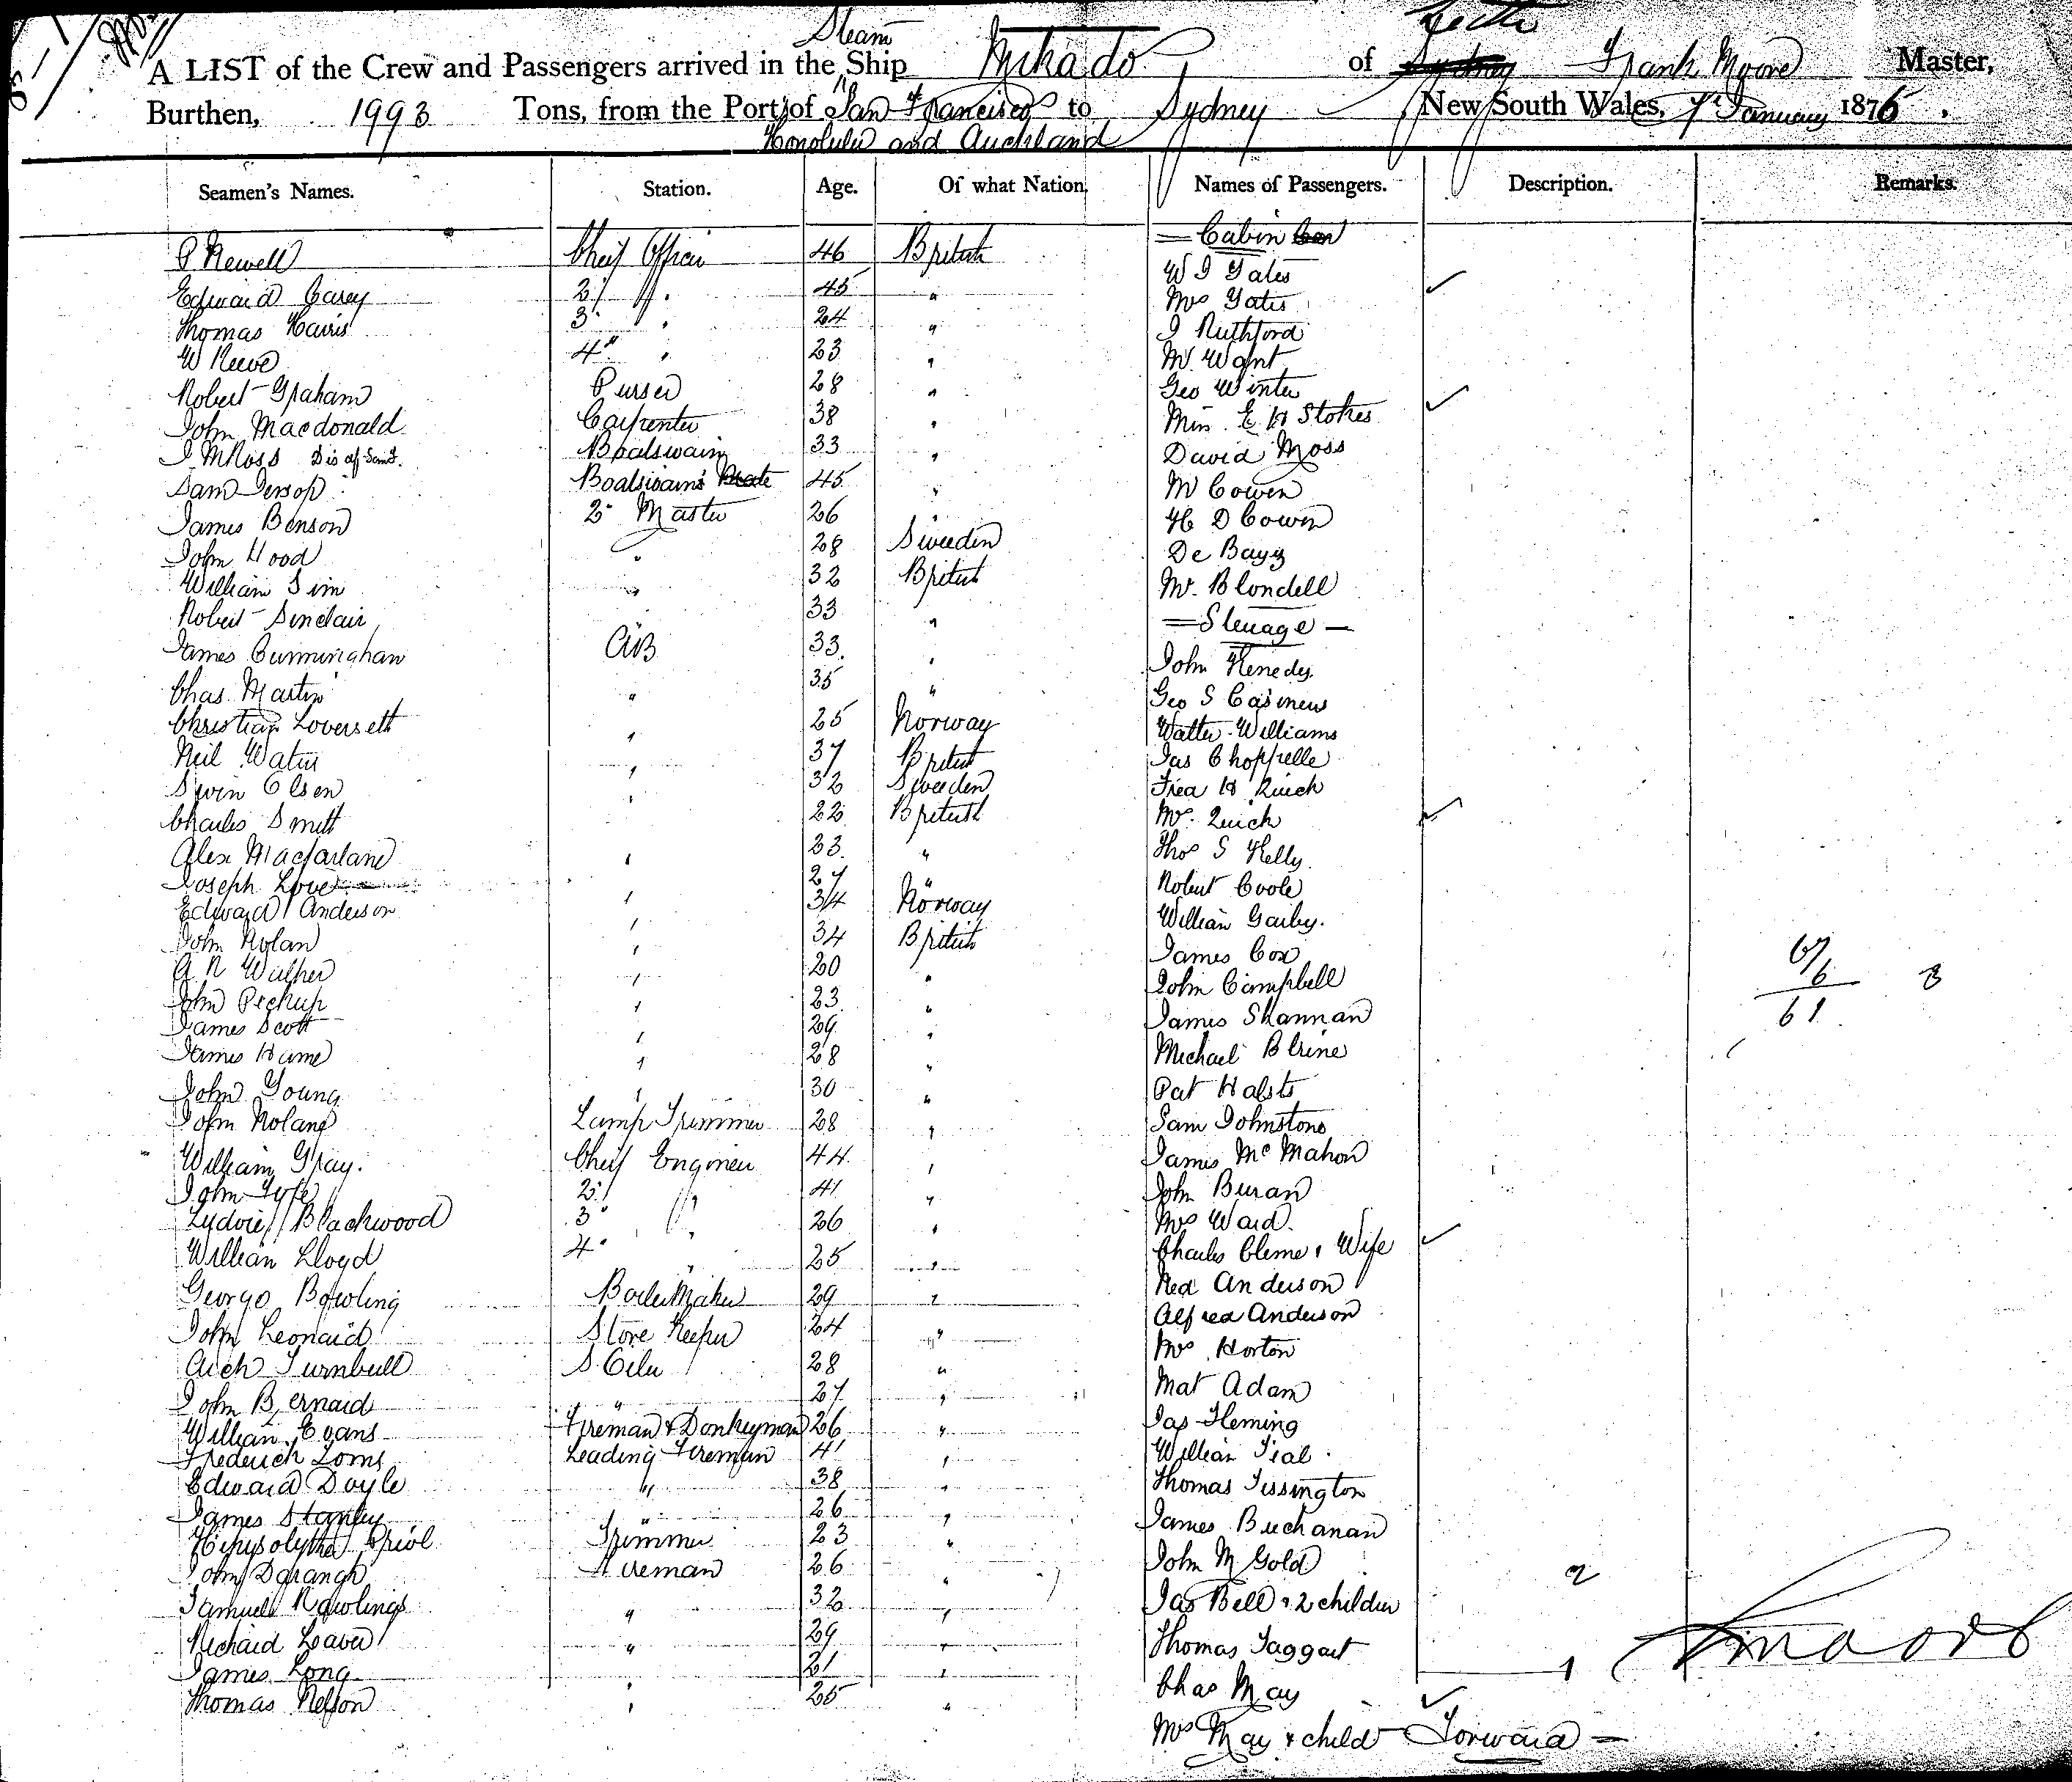 Steam
A LIST of the Crew and Passengers arrived in the Ship Mikado of Leith Frank Moore Master,
Burthen, 1993 Tons, from the Port of San Francisco to Sydney New South Wales, 7th January 1876.
Honolulu and Auckland
Seamen's Names. Station. Age. Of what Nation. Names of Passengers. Description. Remarks.
Cabin
P Newell Cheif Officer 46 British W J Yates
Edward Carey 2d " 45 " Mrs Yates
Thomas Harris 3d " 24 " J Ruthford
W Reeve 4th " 23 " Mr Want
Robert Graham Purser 28 " Geo Winter
John Macdonald Carpenter 38 " Miss E H Stokes
J McRoss Boatswain 33 " David Moss
Sam Jessop Boatswain's Mate 45 " M Cowen
James Benson 2d Master 26 " H D Cowen
John Hood " 28 Sweeden De Bayg
William Sim " 32 British Mr Blondell
Robert Sinclair " 33 " Steerage
James Cunningham AB 33 " John Kenedy
Chas Martin " 35 " Geo S
Christian Loversett " 25 Norway Walter Williams
Neil Water " 37 British Jas Choppelle
Swin Olsen " 32 Sweeden Fred H Quick
Charles Smitt " 22 British Mrs Quick
Alex Macfarland " 23 " Thos S Kelly
Joseph Love " 27 " Robert Coole
Edward Anderson " 34 Norway William Gaiby
John Nolan " 34 British James Cox
A R Walker " 20 " John Campbell
John Pickup " 23 " James Shannan
James Scott " 29 " Michael
James Hume " 28 " Pat
John Young " 30 " Sam Johnstone
John Noland Lamp Trimmer 28 " James McMahon
William Gray Cheif Engineer 44 " John Buran
John Fyfe 2d " 41 " Mrs Ward
Blackwood 3d " 26 " Charles Cleme & Wife
William Lloyd 4th " 25 " Ned Anderson
George Bowling Boiler Maker 29 " Alfred Anderson
John Leonard Store Keeper 24 " Mrs Horton
Arch Turnbull S. Oiler 28 " Mat Adam
John Bernard " 27 " Jas Fleming
William Evans Fireman & Donkeyman 26 " William Tial
Frederick Toms Leading Fireman 41 " Thomas Tissington
Edward Doyle " 38 " James Buchanan
James Stanley " 26 " John M Gold
Trimmer 23 " Jas Bell & 2 children 2
John Fireman 26 " Thomas Taggart
Samuel Rawlings " 32 " Chas May 1
Richard Leaver " 29 " Mrs May & child Forward
James Long " 21 "
Thomas Nelson " 25 "
67
6
61
3